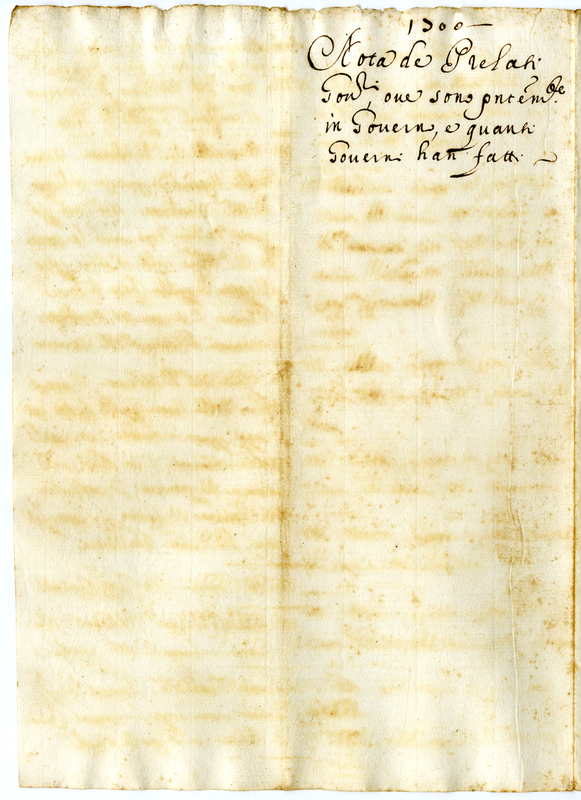 1700
Nota de Prelati
Gou.ri, oue sono pntem.te
in Gouern, e quanti
Gouerni han fatti